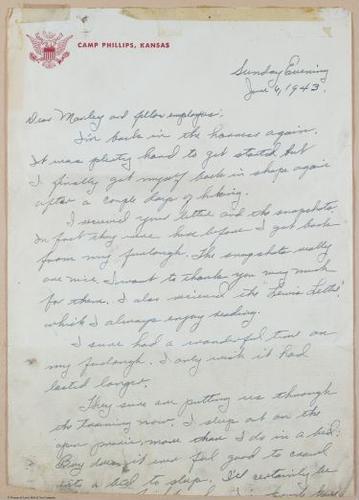 CAMP PHILLIPS, KANSAS
Sunday Evening
June 6, 1943.
Dear Manley and fellow employees;
I'm back in the harness again.
It was plenty hard to get started but
I finally got myself back in shape again
after a couple days of hiking.
I received your letter and the snapshots.
In fact they were here before I got back
from my furlough. The snapshots really
are nice. I want to thank you very much
for them. I also received the "Lewis Letter"
which I always enjoy reading.
I sure had a wonderful time on
my furlough. I only wish it had
lasted longer.
They sure are putting us through
the training now. I sleep out on the
open prairie more than I do in a bed.
Boy does it ever feel good to crawl
into a bed to sleep. I'll certainly be